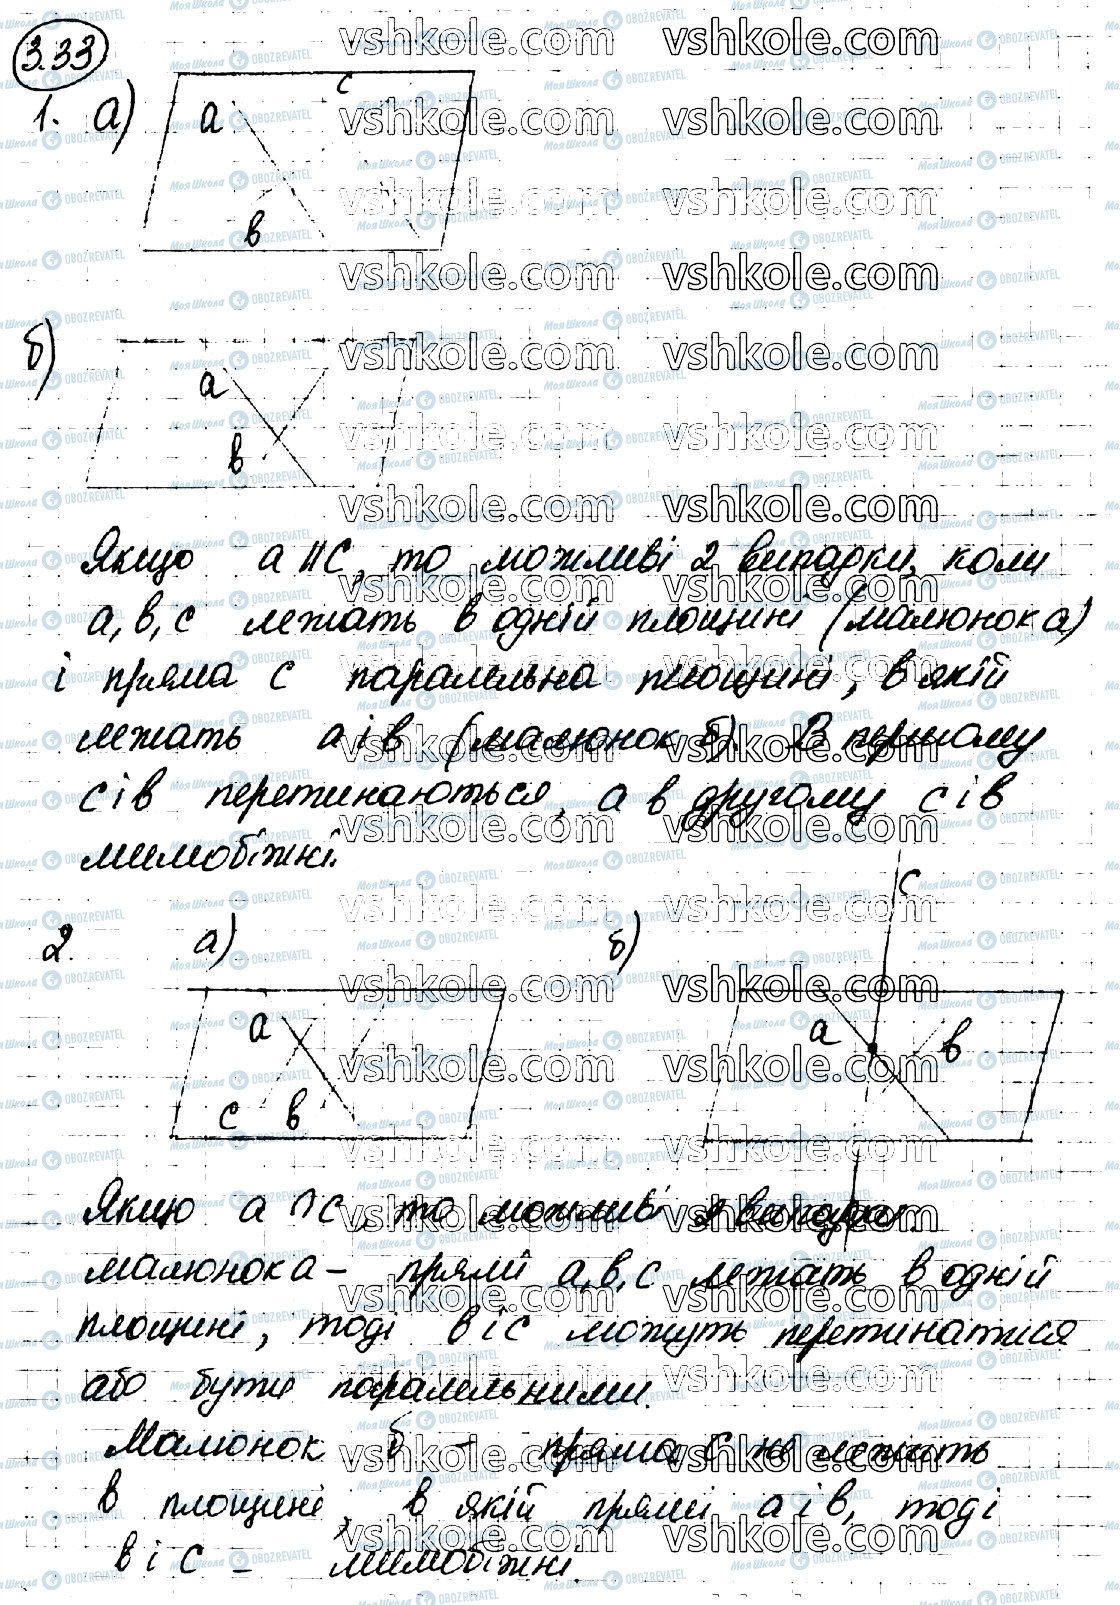 3.33
1. а)
а
с
в
б)
а
в
Якщо а ∥ с, то можливі 2 випадки, коли
а, в, с лежать в одній площині (малюнок а)
і пряма с паралельна площині, в якій
лежать а і в (малюнок б). В першому
с і в перетинаються, а в другому с і в
мимобіжні.
2. а)
б)
с
а
а
в
с
в
Якщо а ∩ с, то можливі 2 випадки.
малюнок а – прямі а, в, с лежать в одній
площині, тоді в і с можуть перетинатися
або бути паралельними.
Малюнок б – пряма с не лежить
в площині, в якій прямі а і в, тоді
в і с – мимобіжні.
vshkole.com
МояШкола OBOZREVATEL